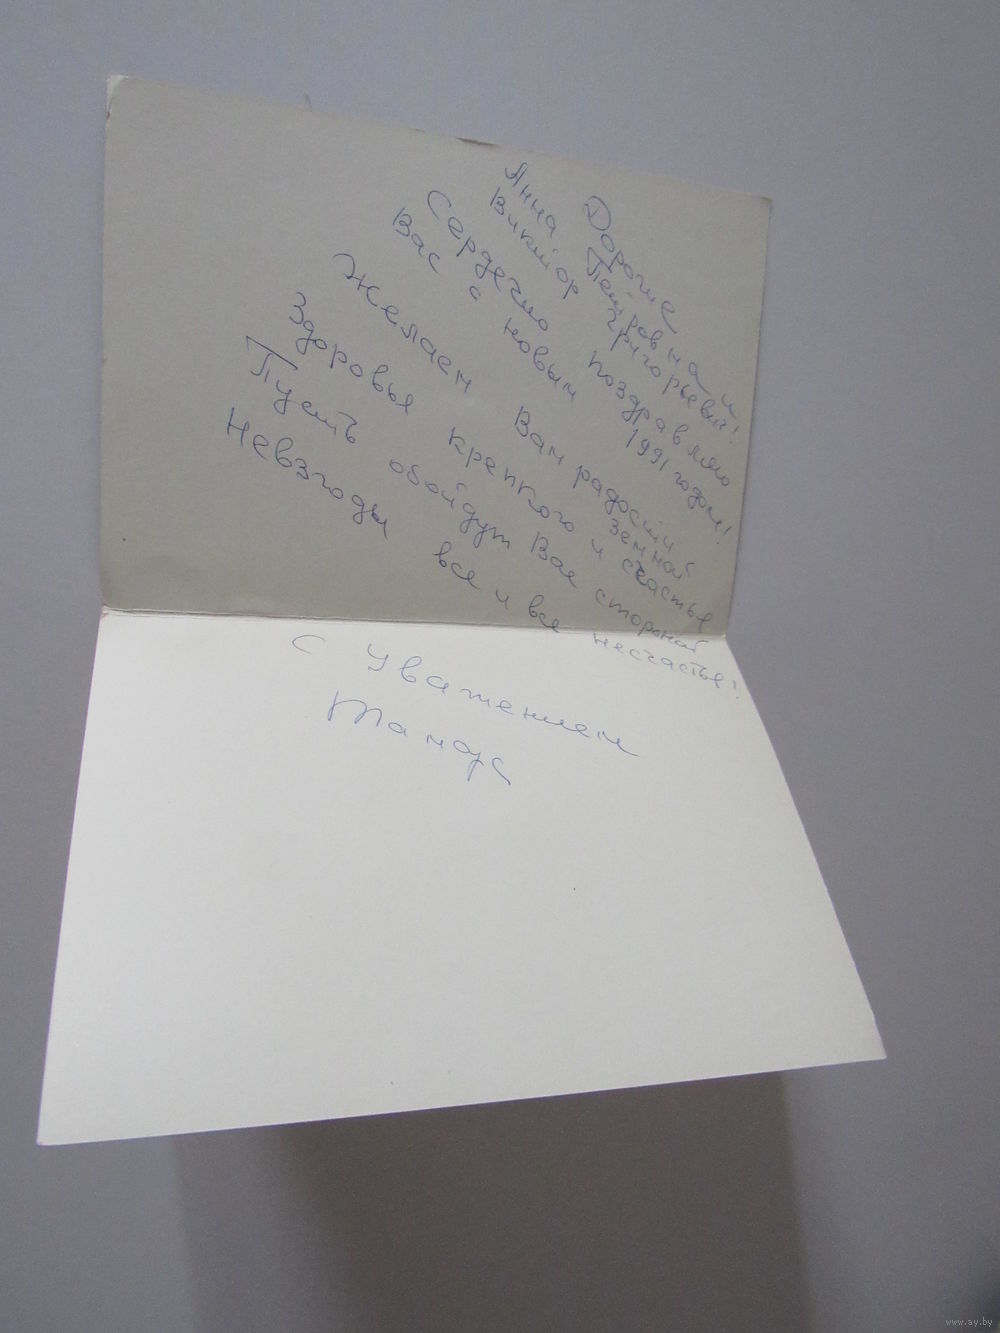 Дорогие
Анна Петровна и
Виктор Григорьевич!
Сердечно поздравляю
Вас с новым 1991 годом!
Желаем Вам радости земной
Здоровья крепкого и счастья
Пусть обойдут Вас стороной
Невзгоды все и все несчастья!
С уважением
www.ay.by